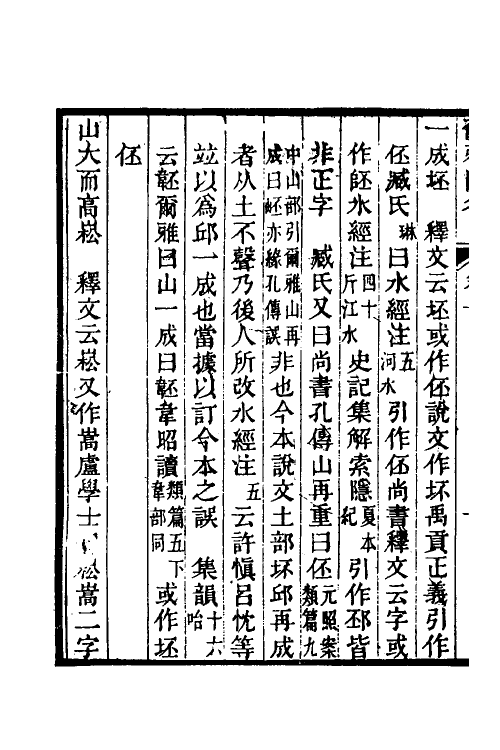 一成坯　釋文云坯或作伾說文作坏禹貢正義引作
伾臧氏琳曰水經注五河水引作伾尚書釋文云字或
作𨸬水經注四十斤江水史記集解索隱夏本紀引作邳皆
非正字　臧氏又曰尚書孔傳山再重曰伾元照案類篇九
中山部引爾雅山再成曰岯亦緣孔傳誤非也今本說文土部坏邱再成
者从土不聲乃後人所改水經注五云許慎呂忱等
竝以爲邱一成也當據以訂今本之誤　集韻十六咍
云䪹爾雅曰山一成曰䪹韋昭讀類篇五下韋部同或作坯
伾
山大而高崧　釋文云崧又作嵩盧學士曰崧嵩二字